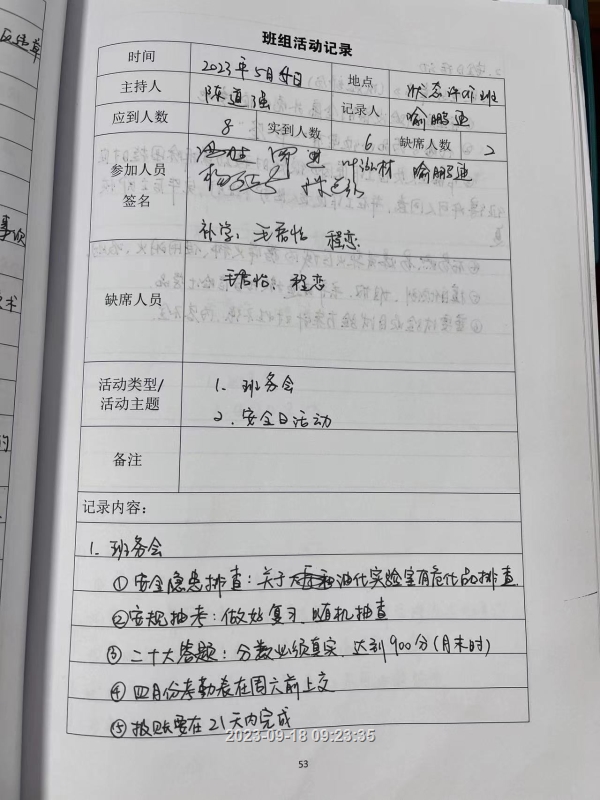 班组活动记录
时间 2023年5月4日 地点 状态评价班
主持人 陈道强 记录人 喻鹏迪
应到人数 8 实到人数 6 缺席人数 2
参加人员
签名
喻鹏迪
补学：毛君怡 程恋
缺席人员 毛君怡、程恋
活动类型/
活动主题
1. 班务会
2. 安全日活动
备注
记录内容：
1. 班务会
①安全隐患排查：关于油化实验室有危化品排查
②安规抽考：做好复习、随机抽查
③二十大答题：分数必须真实、达到900分(月末时)
④四月份考勤表在周六前上交
⑤报账要在21天内完成
2023-09-18 09:23:35
53